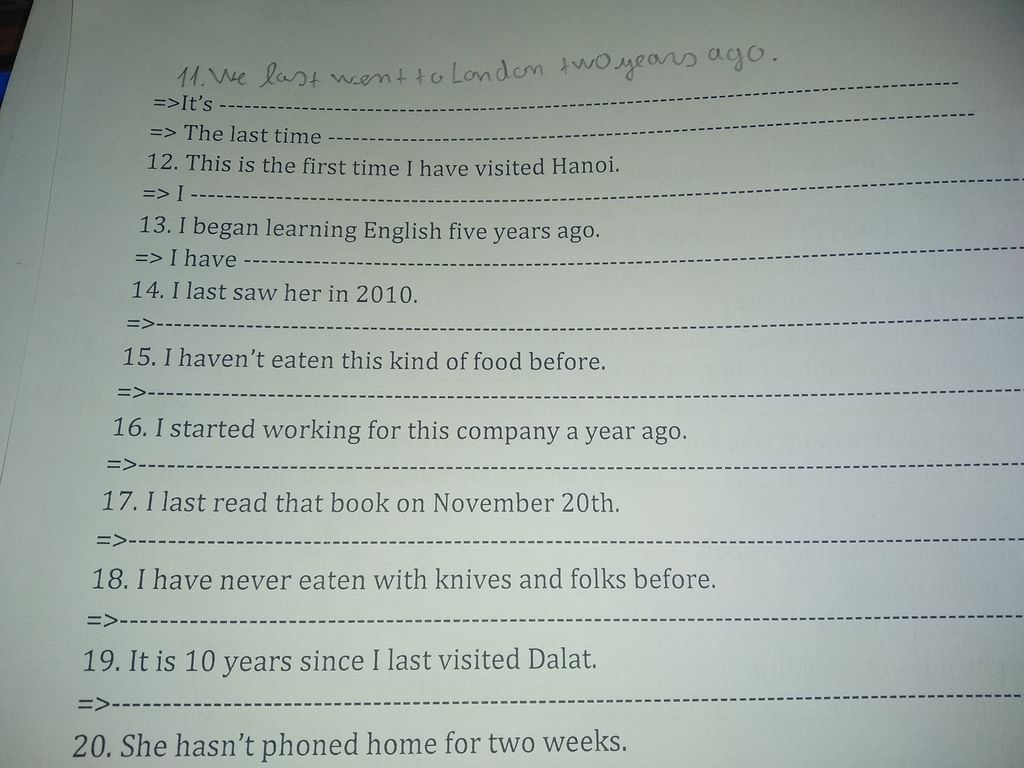 11. We last went to London two years ago.
=>It's ----------------------------------------
=> The last time ----------------------------------------
12. This is the first time I have visited Hanoi.
=> I ----------------------------------------
13. I began learning English five years ago.
=> I have ----------------------------------------
14. I last saw her in 2010.
=>----------------------------------------
15. I haven't eaten this kind of food before.
=>----------------------------------------
16. I started working for this company a year ago.
=>----------------------------------------
17. I last read that book on November 20th.
=>----------------------------------------
18. I have never eaten with knives and folks before.
=>----------------------------------------
19. It is 10 years since I last visited Dalat.
=>----------------------------------------
20. She hasn't phoned home for two weeks.